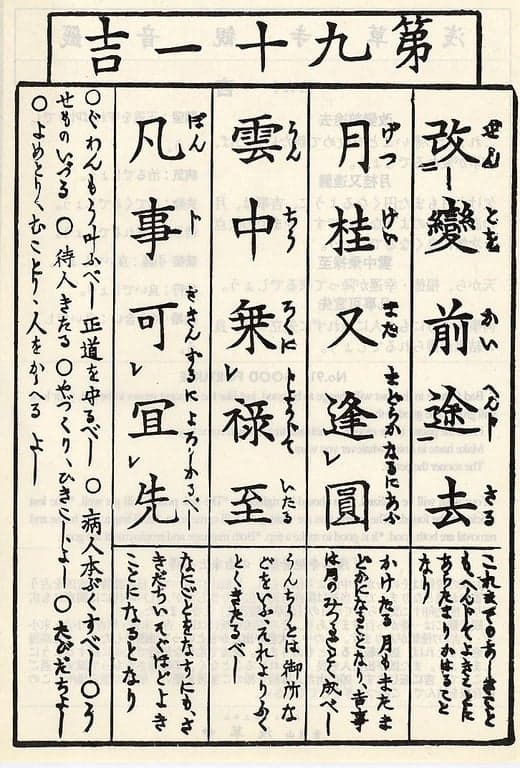 第九十一吉
改變前途去
せんど を かい へんじ さる
これまでのあしきこと
もへんじてよきことに
あらたまりかはること
なり
月桂又逢圓
げつ けい また まどかなるにあふ
かけたる月もまたま
どかになることなり吉事
は月のみつるごとく成べし
雲中乗禄至
うん ちう ろくに じようじて いたる
うんちうとは御所な
どをいふそれよりろく
きたるべし
凡事可宜先
ぼん じ さきんするによろしかるべし
なにごとをなすにも、さ
きだちいそぐほどよき
ことになるとなり
○ぐわんもう叶ふべし正道を守るべし ○病人本ぶくすべし ○う
せものいづる ○待人きたる ○やづくり、ひきこしよし ○たびだちよし
○よめとり、むことり、人をかゝへる よし